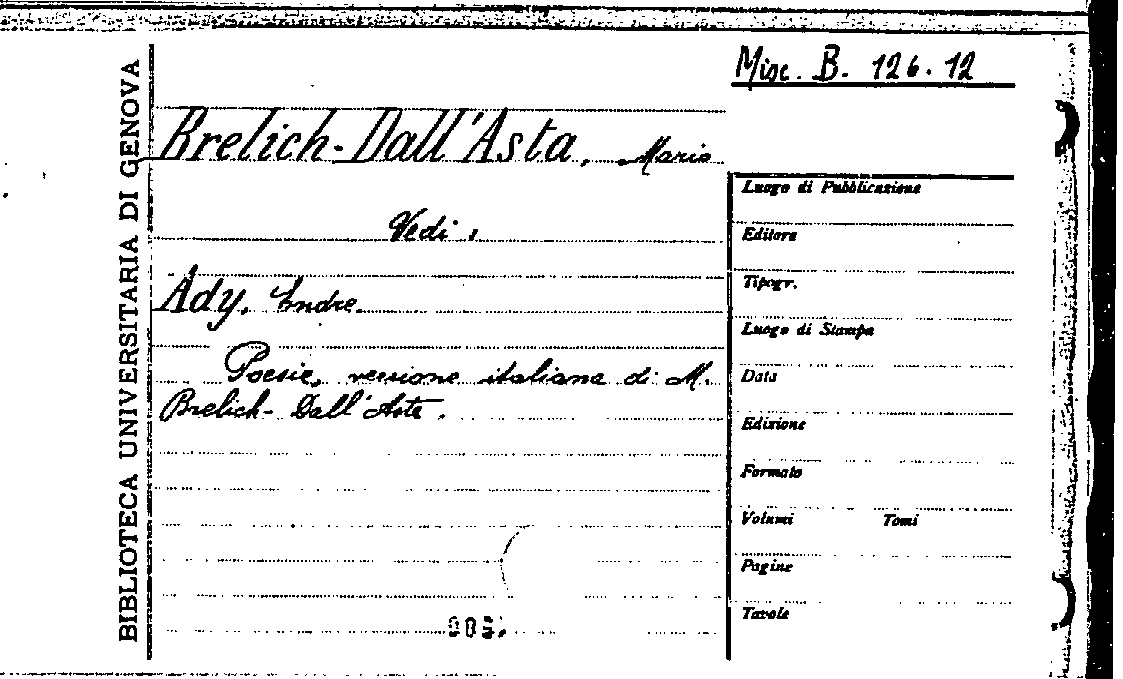 Misc. B. 126.12
BIBLIOTECA UNIVERSITARIA DI GENOVA
Brelich-Dall'Asta, Mario
Vedi:
Ady, Endre.
Poesie, versione italiana di M.
Brelich-Dall'Asta.
Luogo di Pubblicazione
Editore
Tipogr.
Luogo di Stampa
Data
Edizione
Formato
Volumi Tomi
Pagine
Tavole